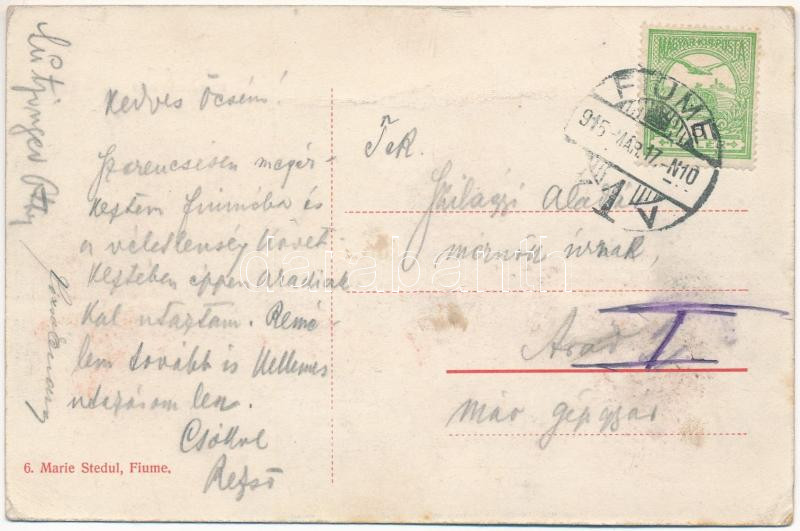 Kedves Öcsém!
Szerencsésen megér-
keztem Fiumeba és
a véletlenség követ-
keztében éppen aradiak
kal utaztam. Remé-
lem tovább is kellemes
utazásom lesz.
Csókol
Rezső
6. Marie Stedul, Fiume.
MAGYAR KIR. POSTA
FIUME
915 MÁR. 17. N10
Tek.
Szilágyi Aladár
mérnök úrnak,
Arad
I
Máv gépgyár
databanth